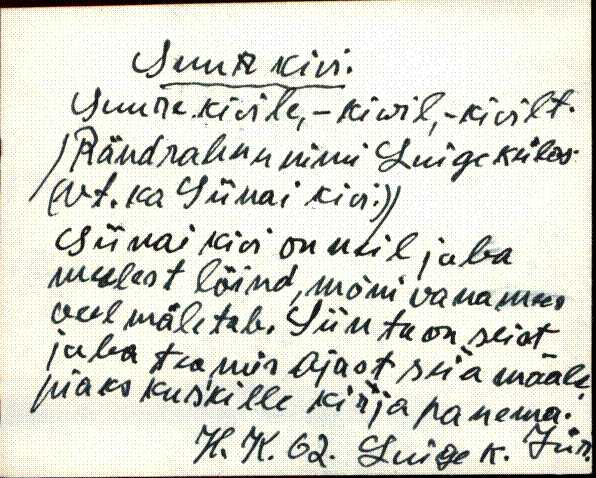 Suur kivi.
Suure kivile, – kivil, – kivilt.
/Rändrahnu nimi Luige külas
(Vt. ka Siinai kivi)/
Siinai kivi on neil juba
meelest läind, mõni vanamees
veel mäletab. Siin ta on seist
juba tea mis ajast seia määle,
piaks kuskille kirja panema.
H. K. 62. Luige k. Jür.